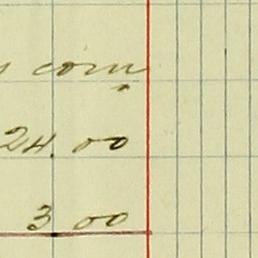 corn
24.00
3 00